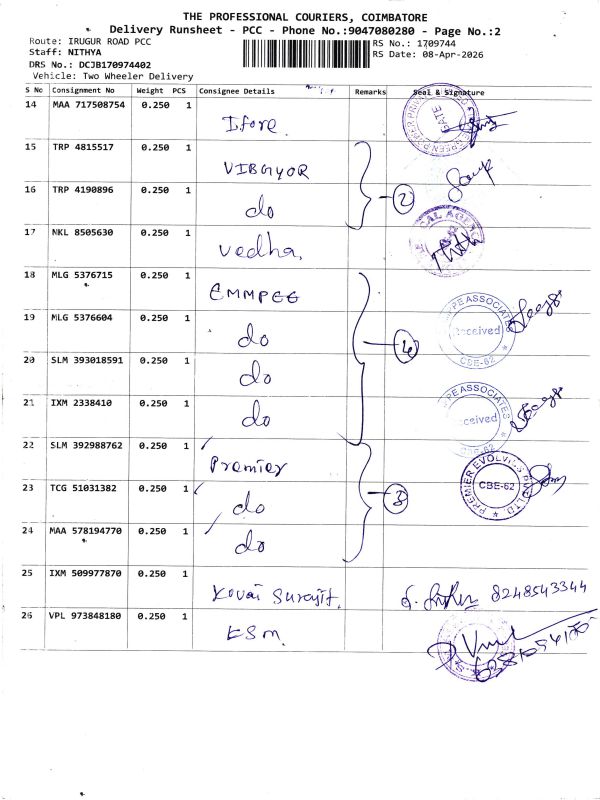 THE PROFESSIONAL COURIERS, COIMBATORE
Delivery Runsheet - PCC - Phone No.:9047080280 - Page No.:2
Route: IRUGUR ROAD PCC
RS No.: 1709744
Staff: NITHYA
RS Date: 08-Apr-2026
DRS No.: DCJB170974402
Vehicle: Two Wheeler Delivery
S No Consignment No Weight PCS Consignee Details Remarks Seal & Signature
14 MAA 717508754 0.250 1 Ifore. GATE
15 TRP 4815517 0.250 1 VIBGYOR
16 TRP 4190896 0.250 1 do 2
17 NKL 8505630 0.250 1 Vedha.
18 MLG 5376715 0.250 1 EMMPEE
19 MLG 5376604 0.250 1 do 4 ASSOCIATES Received CBE-62
20 SLM 393018591 0.250 1 do
21 IXM 2338410 0.250 1 do ASSOCIATES
22 SLM 392988762 0.250 1 Premier
23 TCG 51031382 0.250 1 do 3 PREMIER EVOLVICS PVT LTD. CBE-62
24 MAA 578194770 0.250 1 do
25 IXM 509977870 0.250 1 Kovai Surajit. 8248543344
26 VPL 973848180 0.250 1 KSM.